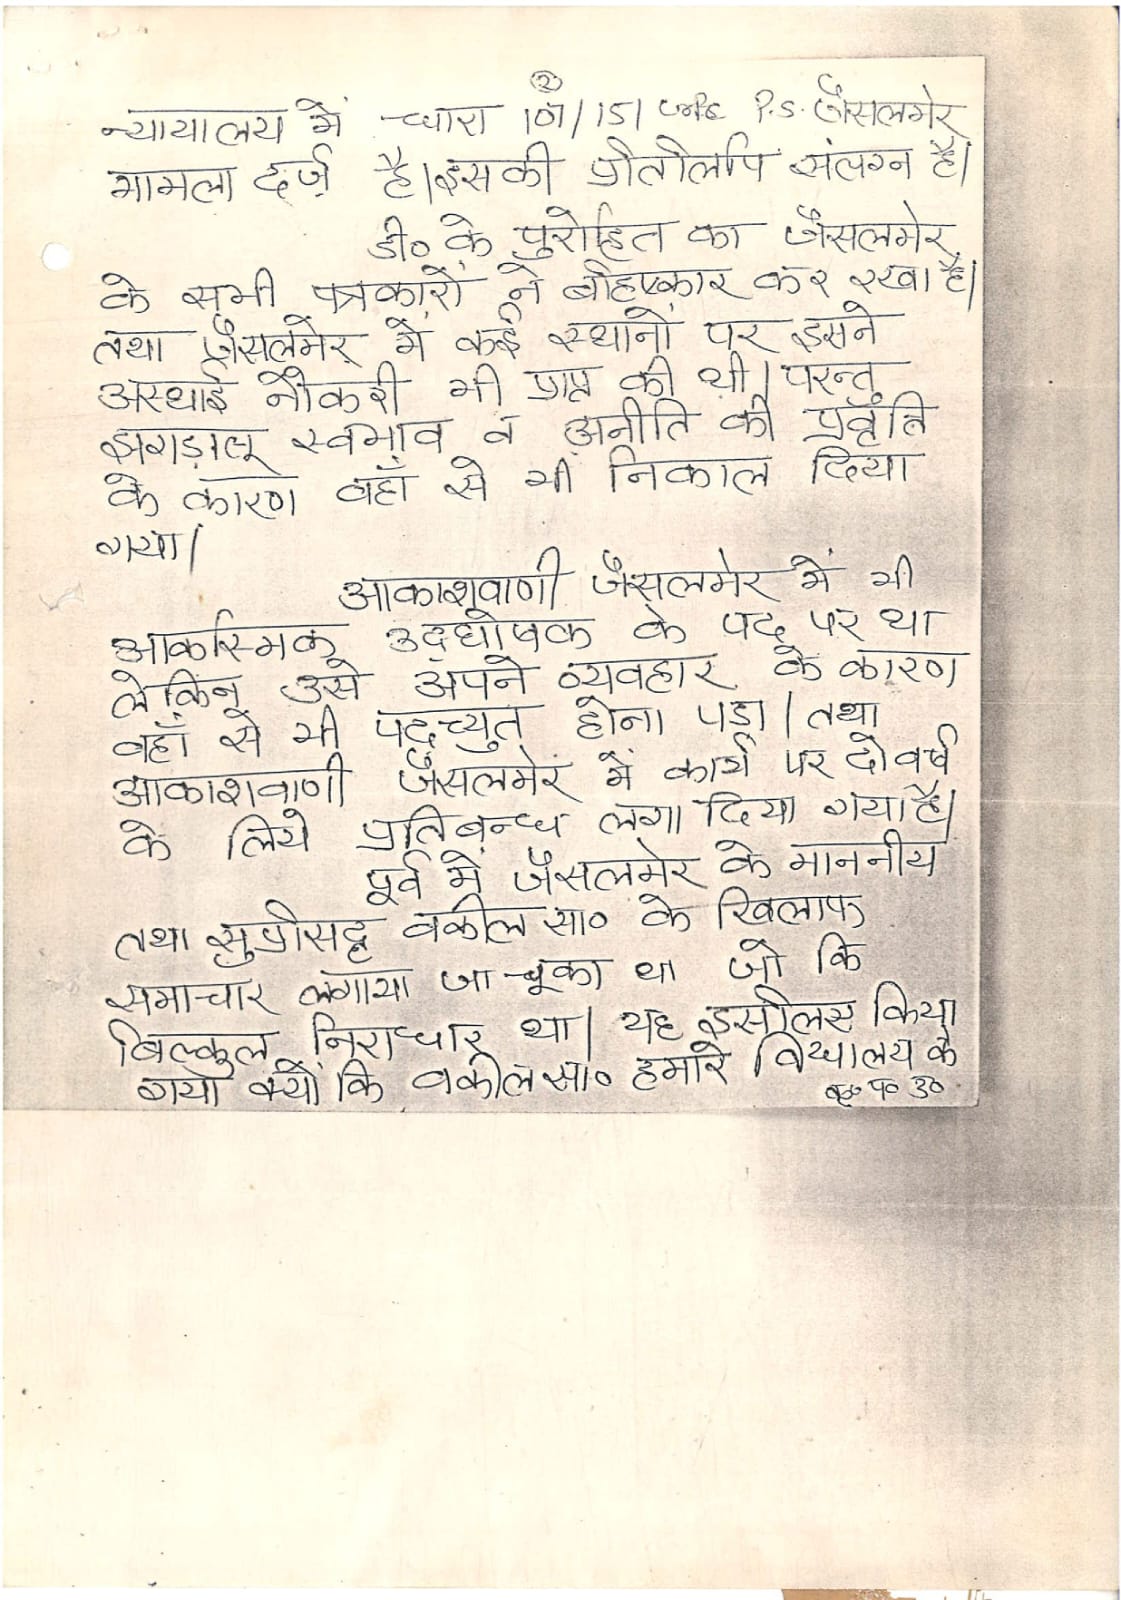 ②
न्यायालय में धारा 107/151 CrPC P.S. जैसलमेर
मामला दर्ज है। इसकी प्रतिलिपि संलग्न है।
डी० के पुरोहित का जैसलमेर
के सभी पत्रकारों ने बहिष्कार कर रखा है।
तथा जैसलमेर में कई स्थानों पर इसने
अस्थाई नौकरी भी प्राप्त की थी। परन्तु
झगड़ालू स्वभाव व अनीति की प्रवृति
के कारण वहाँ से भी निकाल दिया
गया।
आकाशवाणी जैसलमेर में भी
आकस्मिक उद्घोषक के पद पर था
लेकिन उसे अपने व्यवहार के कारण
वहाँ से भी पदच्युत होना पड़ा। तथा
आकाशवाणी जैसलमेर में कार्य पर दो वर्ष
के लिये प्रतिबन्ध लगा दिया गया है।
पूर्व में जैसलमेर के माननीय
तथा सुप्रसिद्ध वकील सा० के खिलाफ
समाचार लगाया जा चूका था जो कि
बिल्कुल निराधार था। यह इसलिए किया
गया क्यों कि वकील सा० हमारे विध्यालय के
कृ० प० उ०